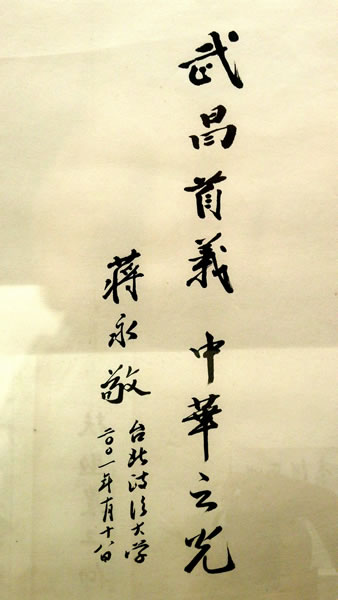 武昌首義 中華之光
蔣永敬
台北政治大学
二〇〇一年十月十八日